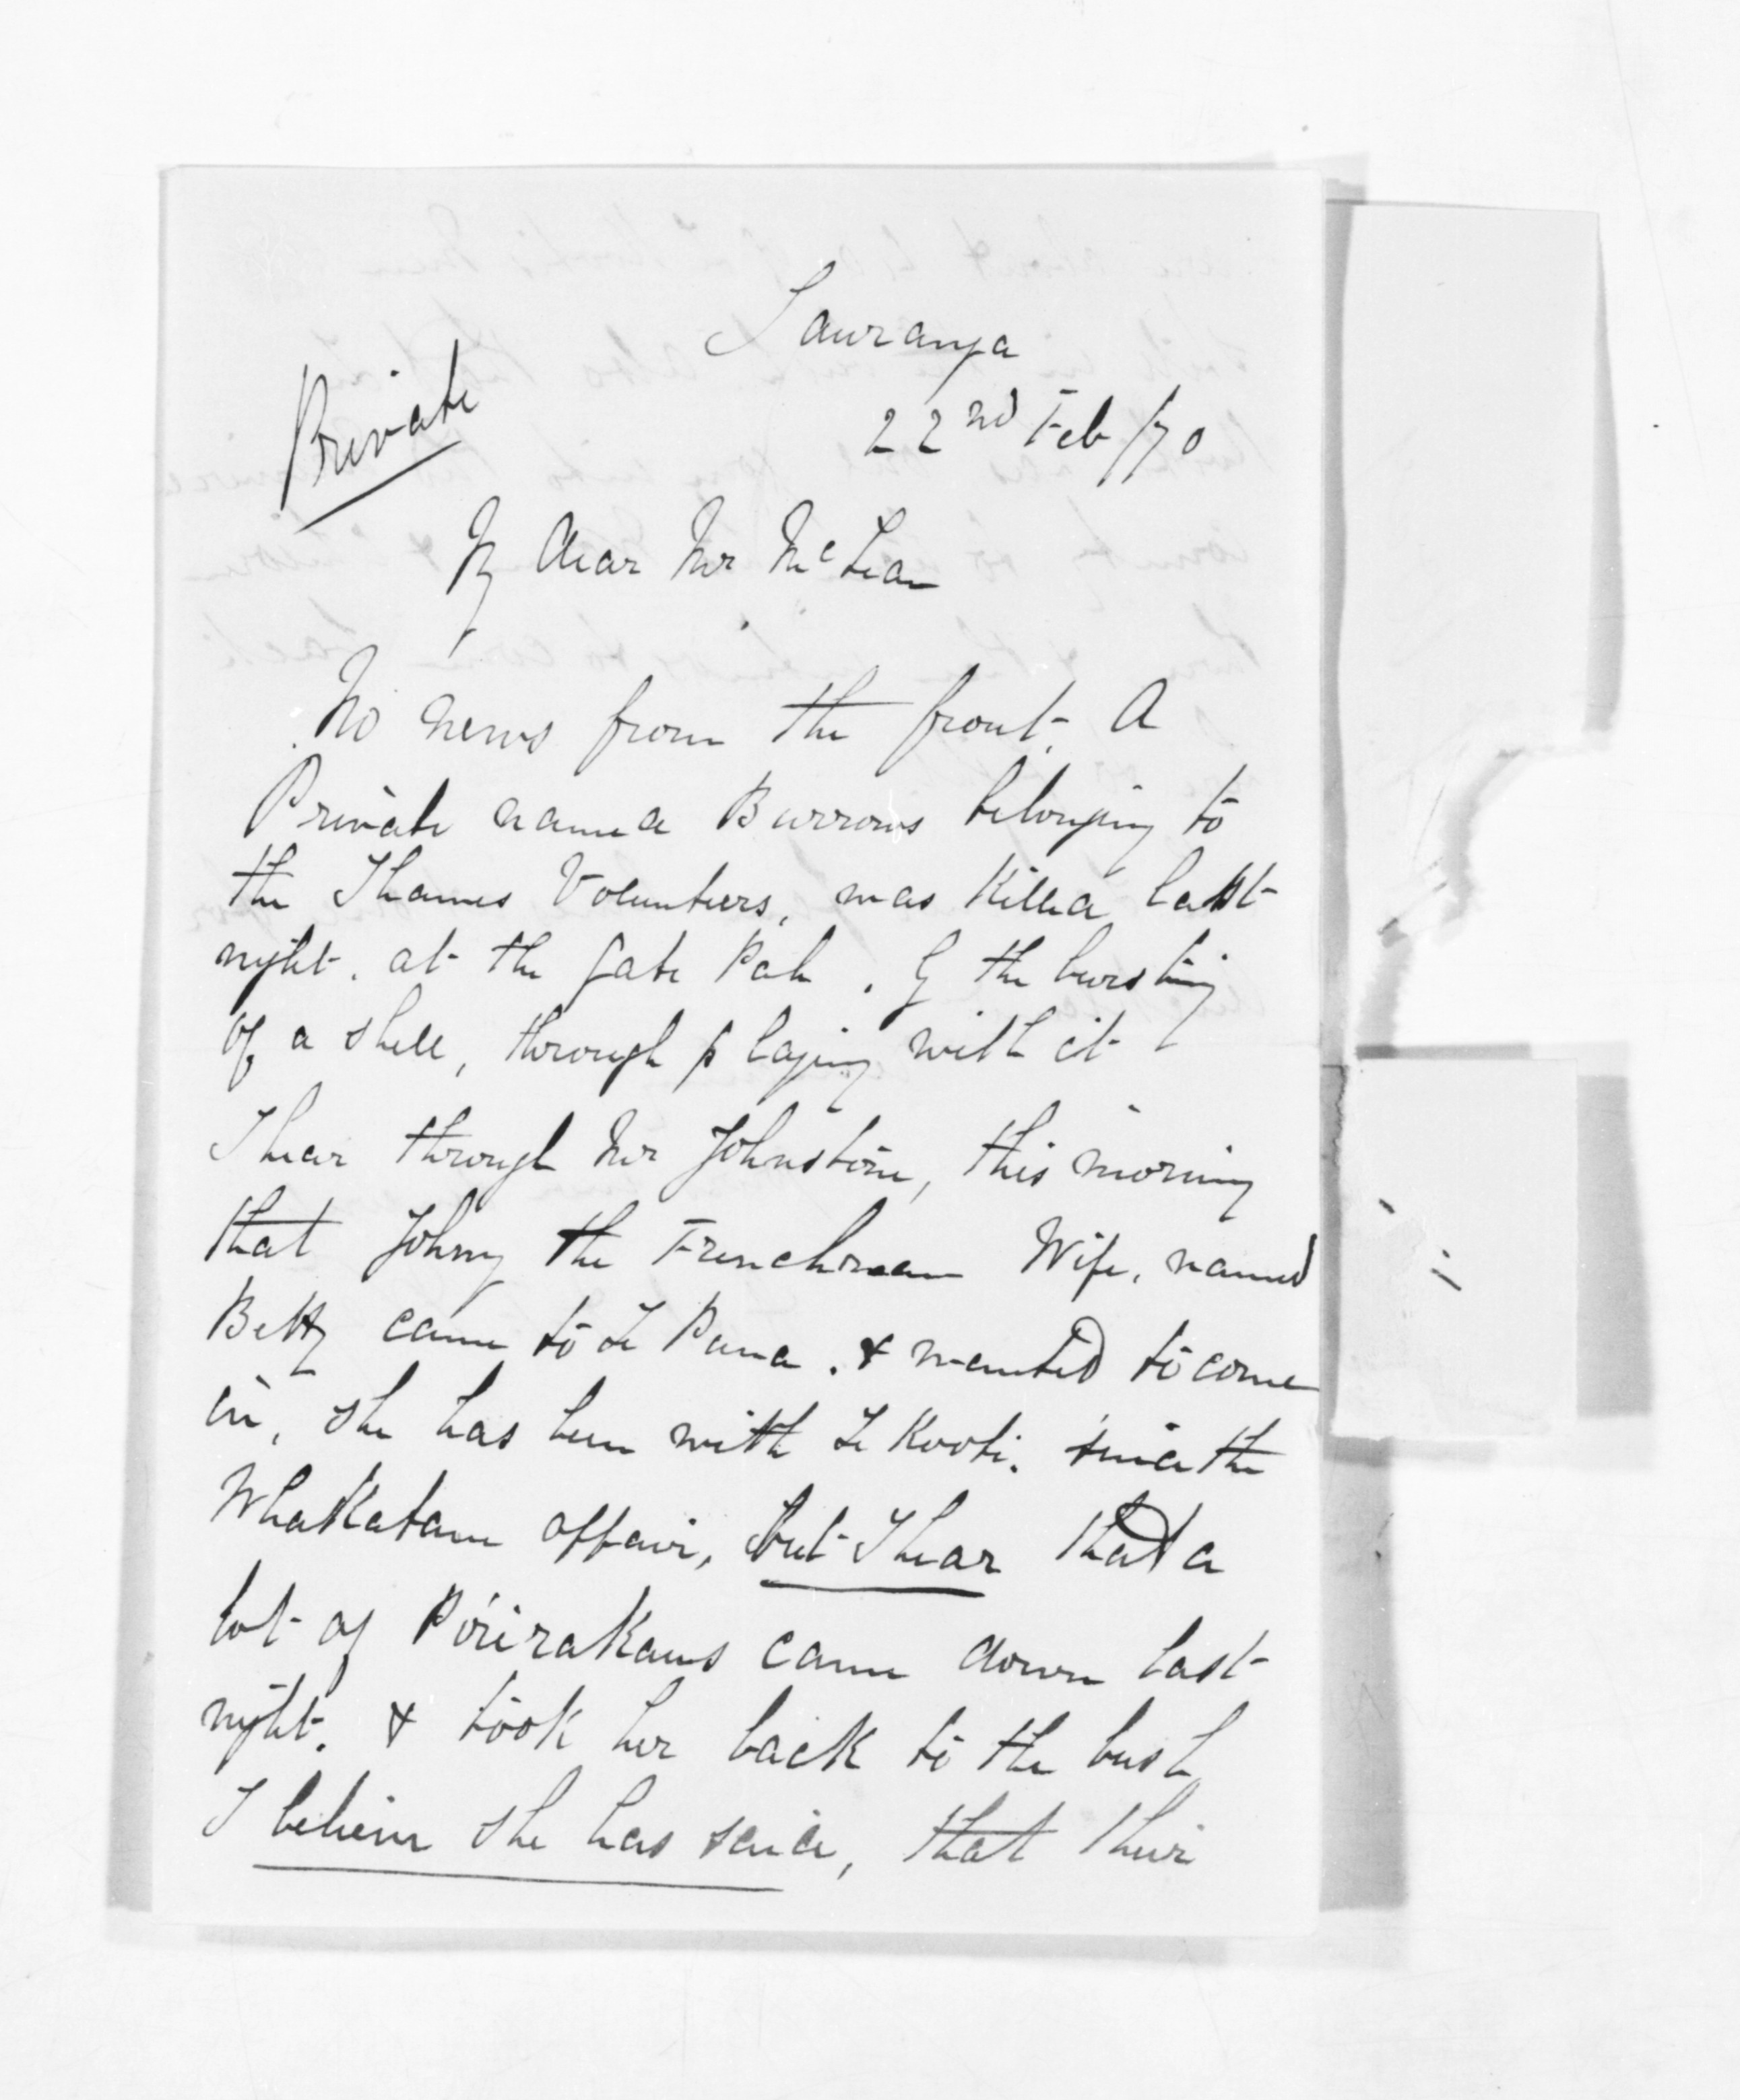 Tauranga
Private
22nd Feb /70
My dear Mr McLean
No news from the front. A
Private named Burrows belonging to
the Thames Volunteers, was killed last
night. at the Gate Pah. By the bursting
of a shell, through playing with it
I hear through Mr Johnstone, this morning
that Johny the Frenchman Wife, named
Betty came to Te Puna. & wanted to come
in, she has been with Te Kooti. since the
Whakatane affair, but I hear that a
lot of Pirirakaus came down last
night. & took her back to the bush
I believe she has said, that their